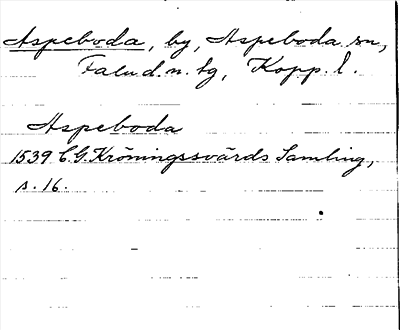 Aspeboda, by, Aspeboda sn,
Falu d.n. tg, Kopp. l.
Aspeboda
1539 C.G. Kröningssvärds Samling,
s. 16.